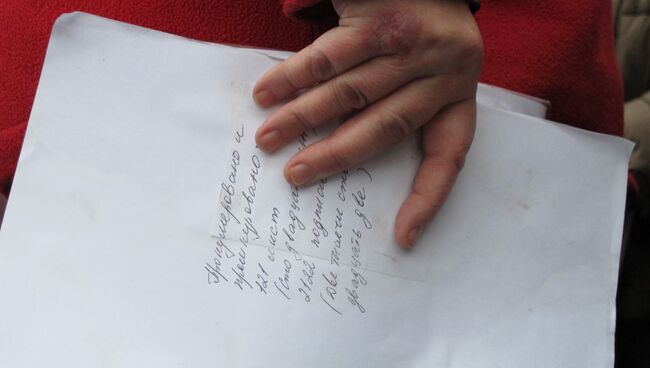 Пронумеровано и
прошнуровано
121 лист
(Сто
2122 подписи
(Две тысячи сто
двадцать две)